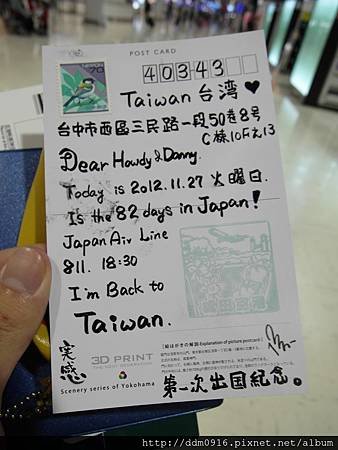 POST CARD
NIPPON
70
40343
Taiwan 台湾♥
台中市西區三民路一段50巷8号
C棟10F之13
Dear Howdy & Danny.
Today is 2012.11.27 火曜日.
Is the 82 days in Japan!
Japan Air Line
811. 18:30
I'm Back to
Taiwan.
実感
3D PRINT
Scenery series of Yokohama
[絵はがきの解説·Explanation of picture postcard]
第一次出国紀念。
http://ddm0916.pixnet.net/album